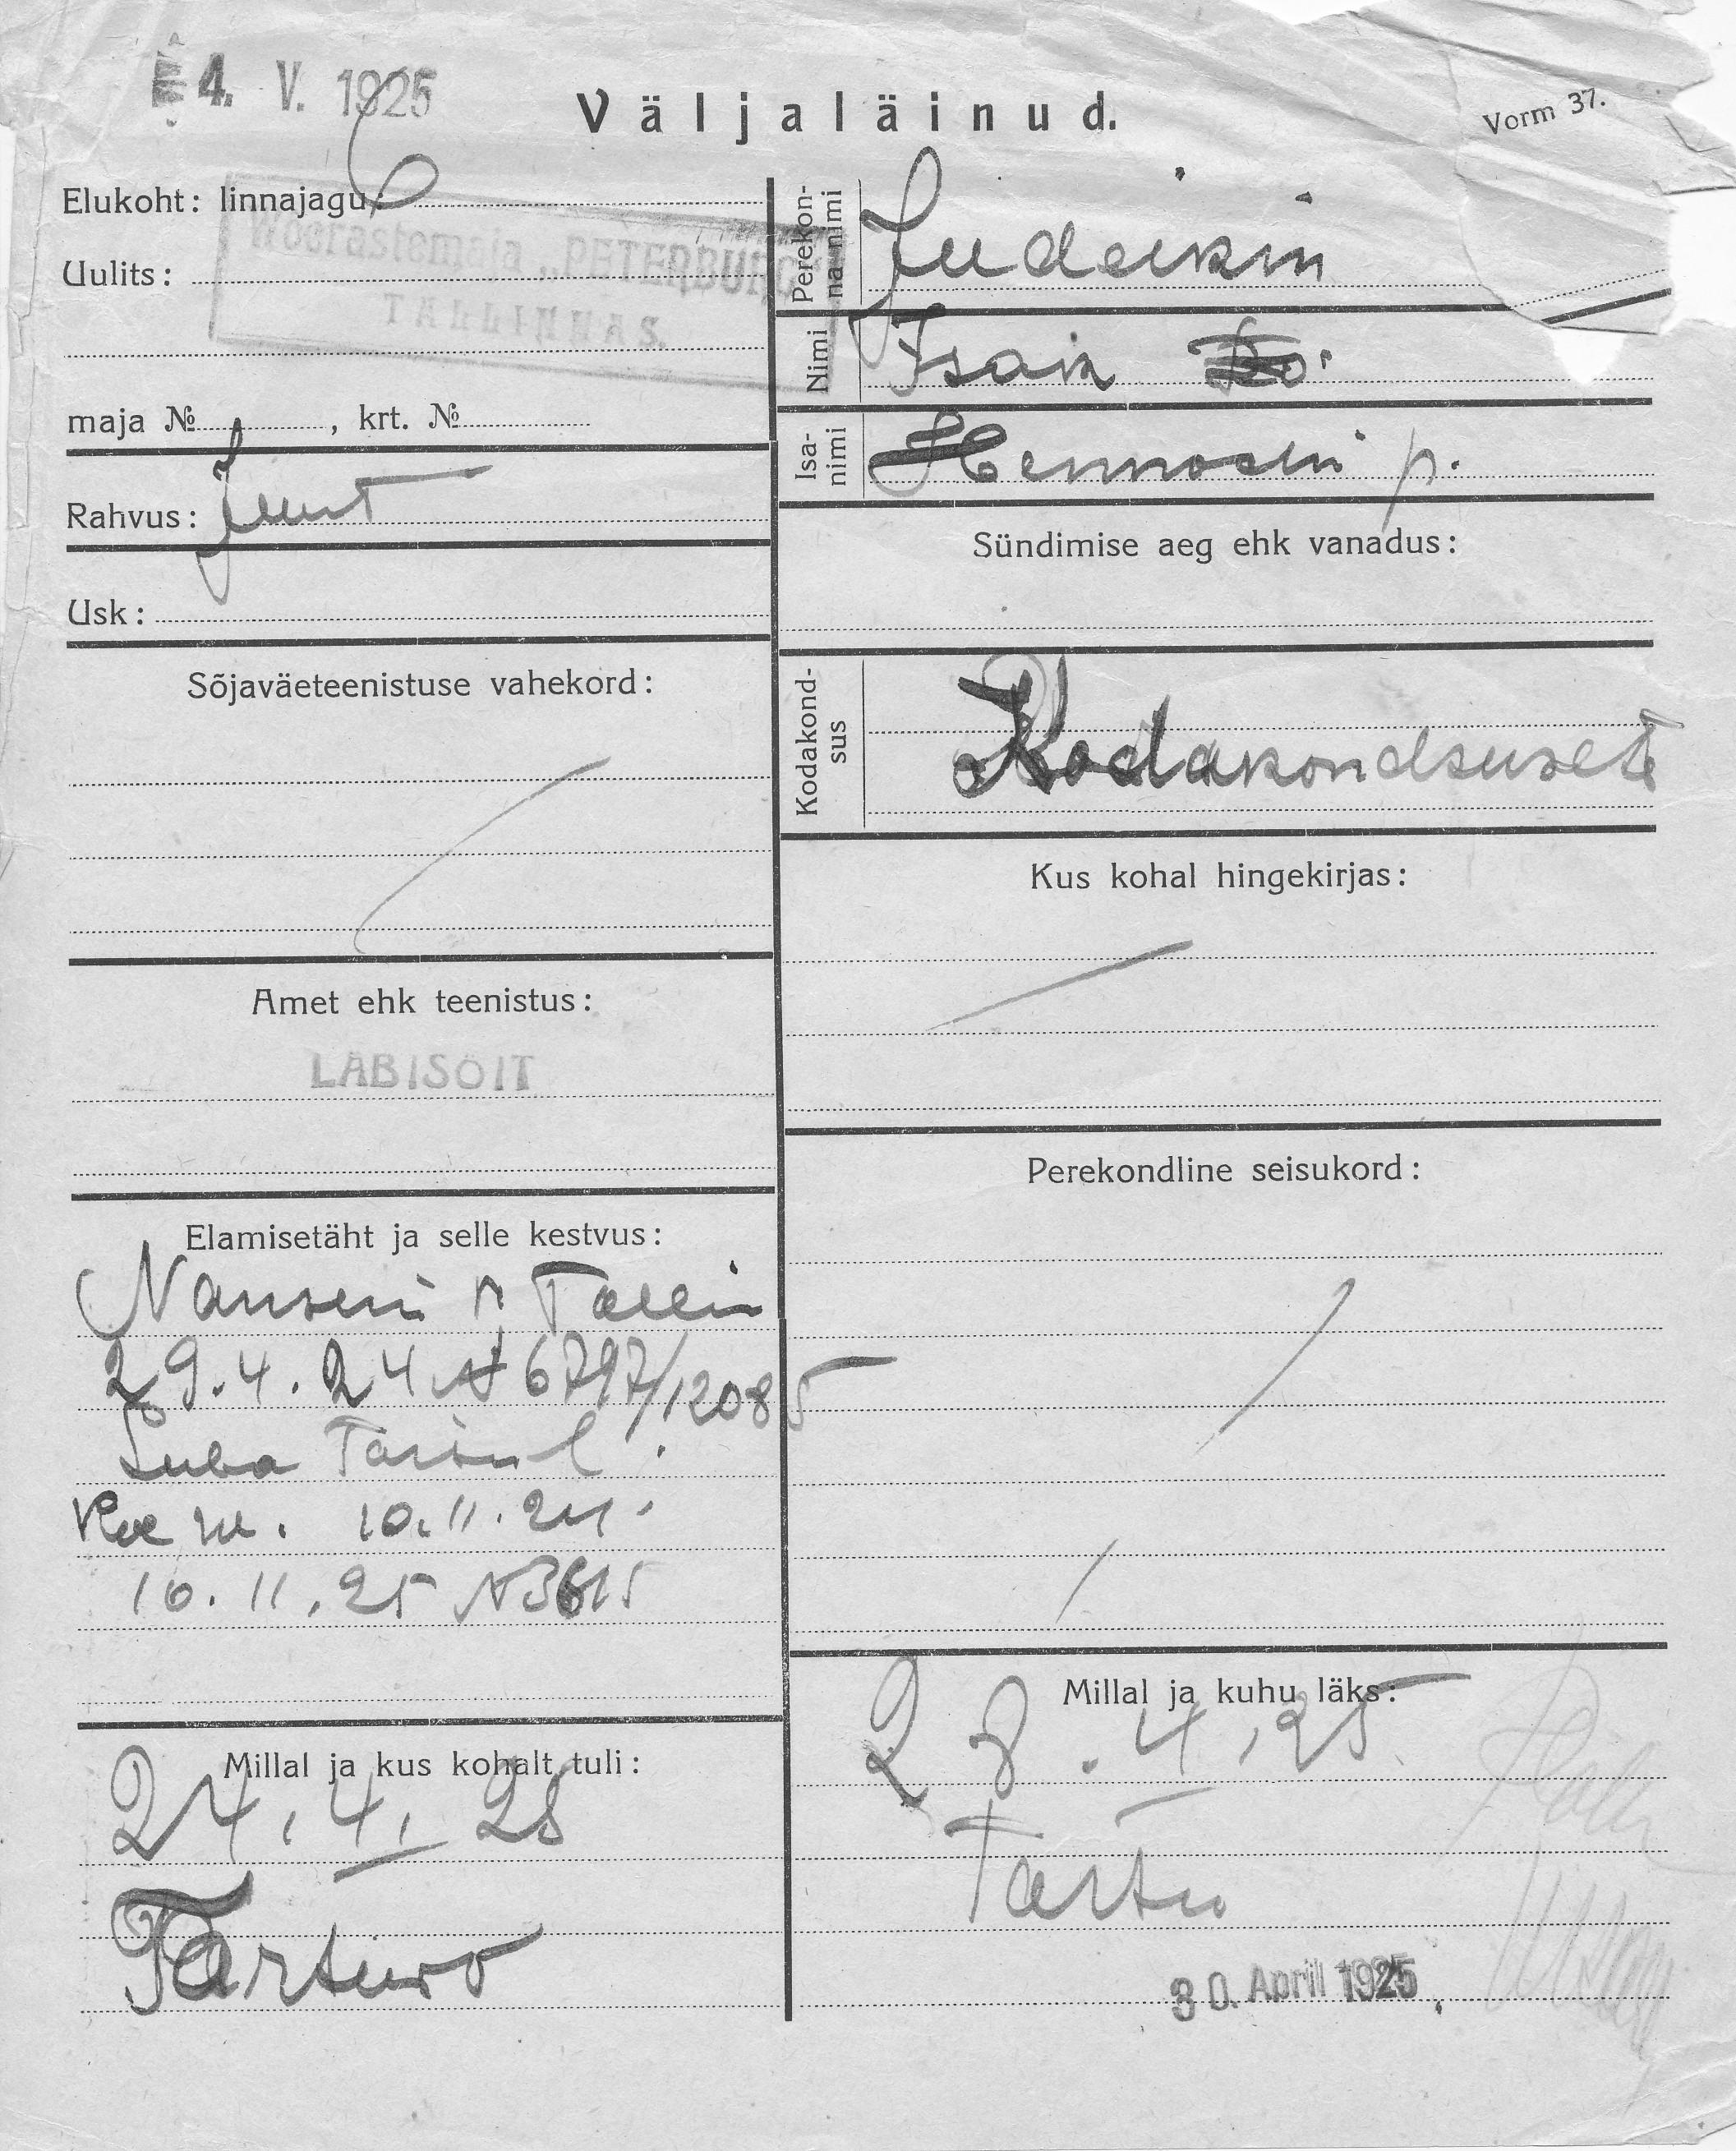 4. V. 1925
Väljaläinud.
Vorm 37.
Elukoht: linnajagu:
6
Woerastemaja „PETERBURG“
TALLINNAS.
Uulits:
maja №, krt. №
Rahvus: Juut
Usk:
Sõjaväeteenistuse vahekord:
Amet ehk teenistus:
LÄBISÕIT
Elamisetäht ja selle kestvus:
Nanseni p. Tallin
29.4.24 N 6797/12085
Luba
10.11.24.
10.11.25 N3615
Millal ja kus kohalt tuli:
24.4.25
Tartus
Perekonna nimi
Judeikin
Nimi
Isak
Isa-nimi
p.
Sündimise aeg ehk vanadus:
Kodakond-sus
Kodakondsuseta
Kus kohal hingekirjas:
Perekondline seisukord:
Millal ja kuhu läks:
28.4.25
Tartu
30. April 1925